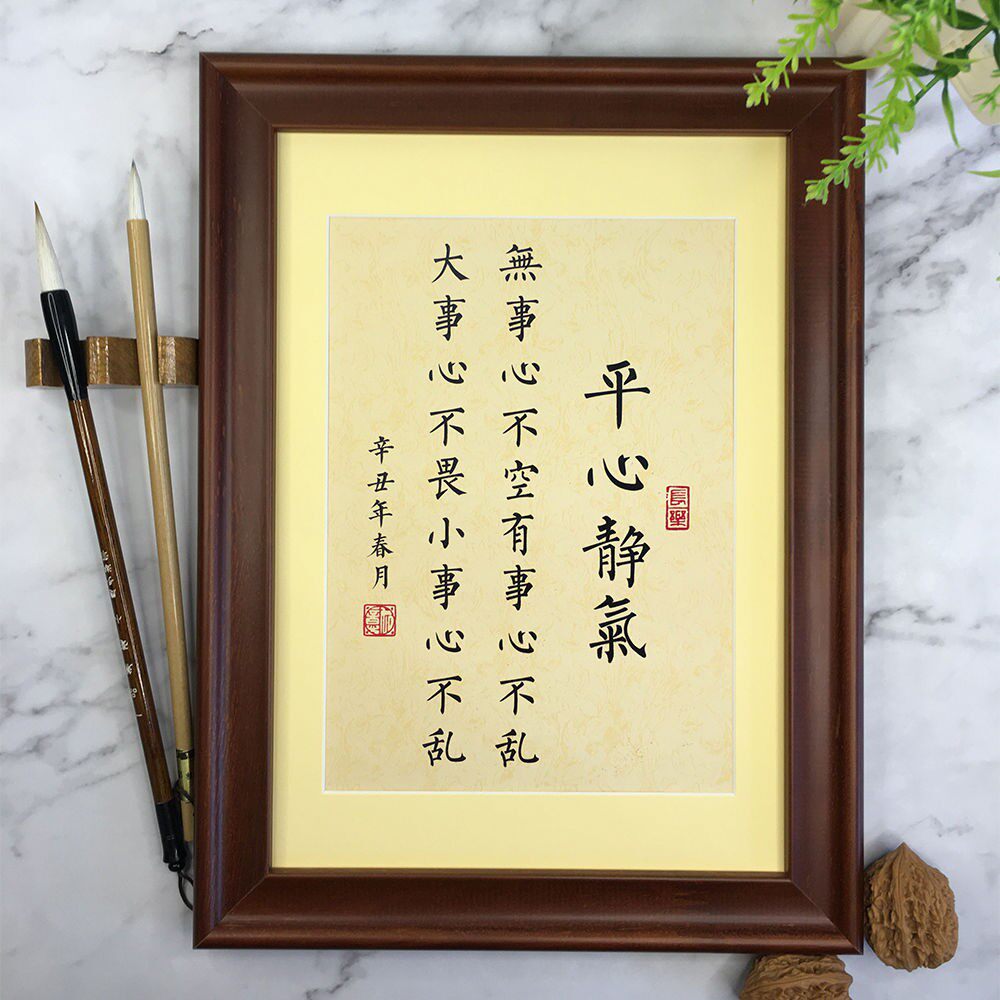 平心静氣
長樂
無事心不空有事心不乱
大事心不畏小事心不乱
辛丑年春月